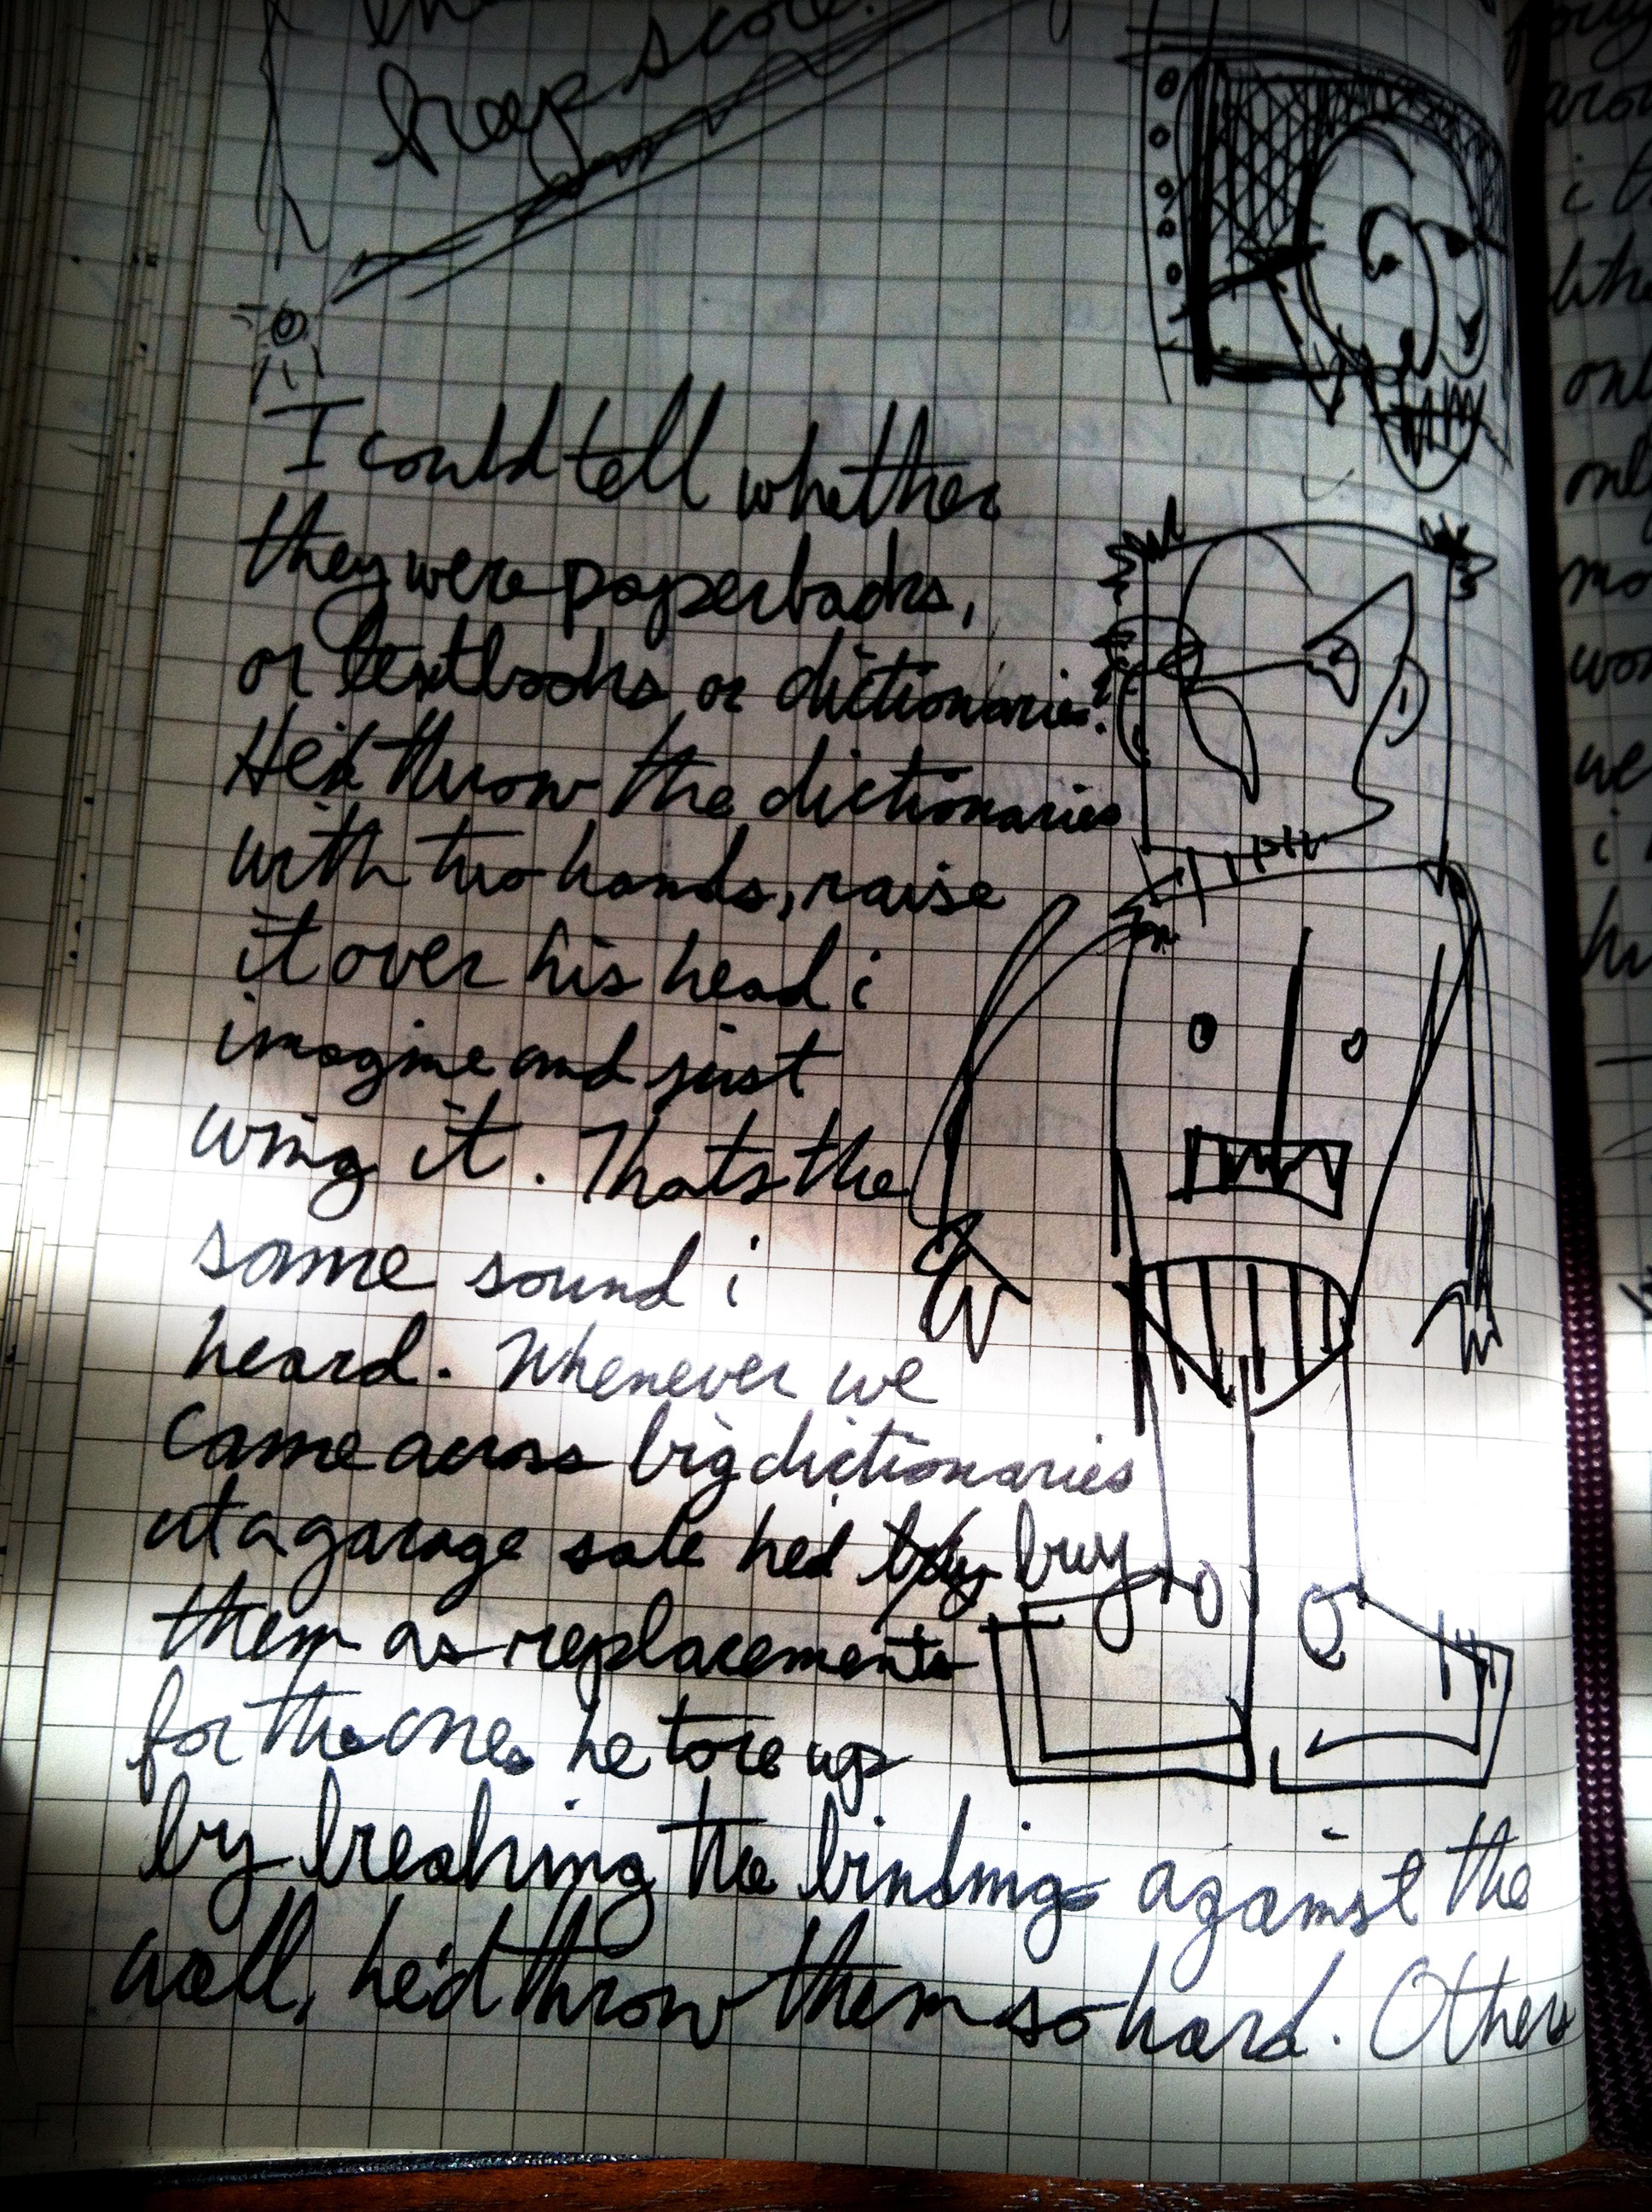 keep score.
I could tell whether
they were paperbacks,
or textbooks or dictionaries.
He'd throw the dictionaries
with two hands, raise
it over his head i
imagine and just
wing it. Thats the
same sound i
heard. Whenever we
came across big dictionaries
at a garage sale hed buy
them as replacements
for the ones he tore up
by breaking the bindings against the
wall, he'd throw them so hard. Others